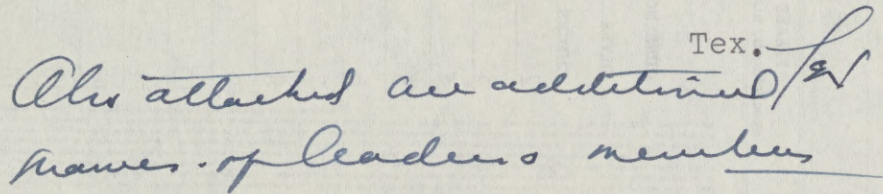 Tex.
Also attached are additional
names of leaders members